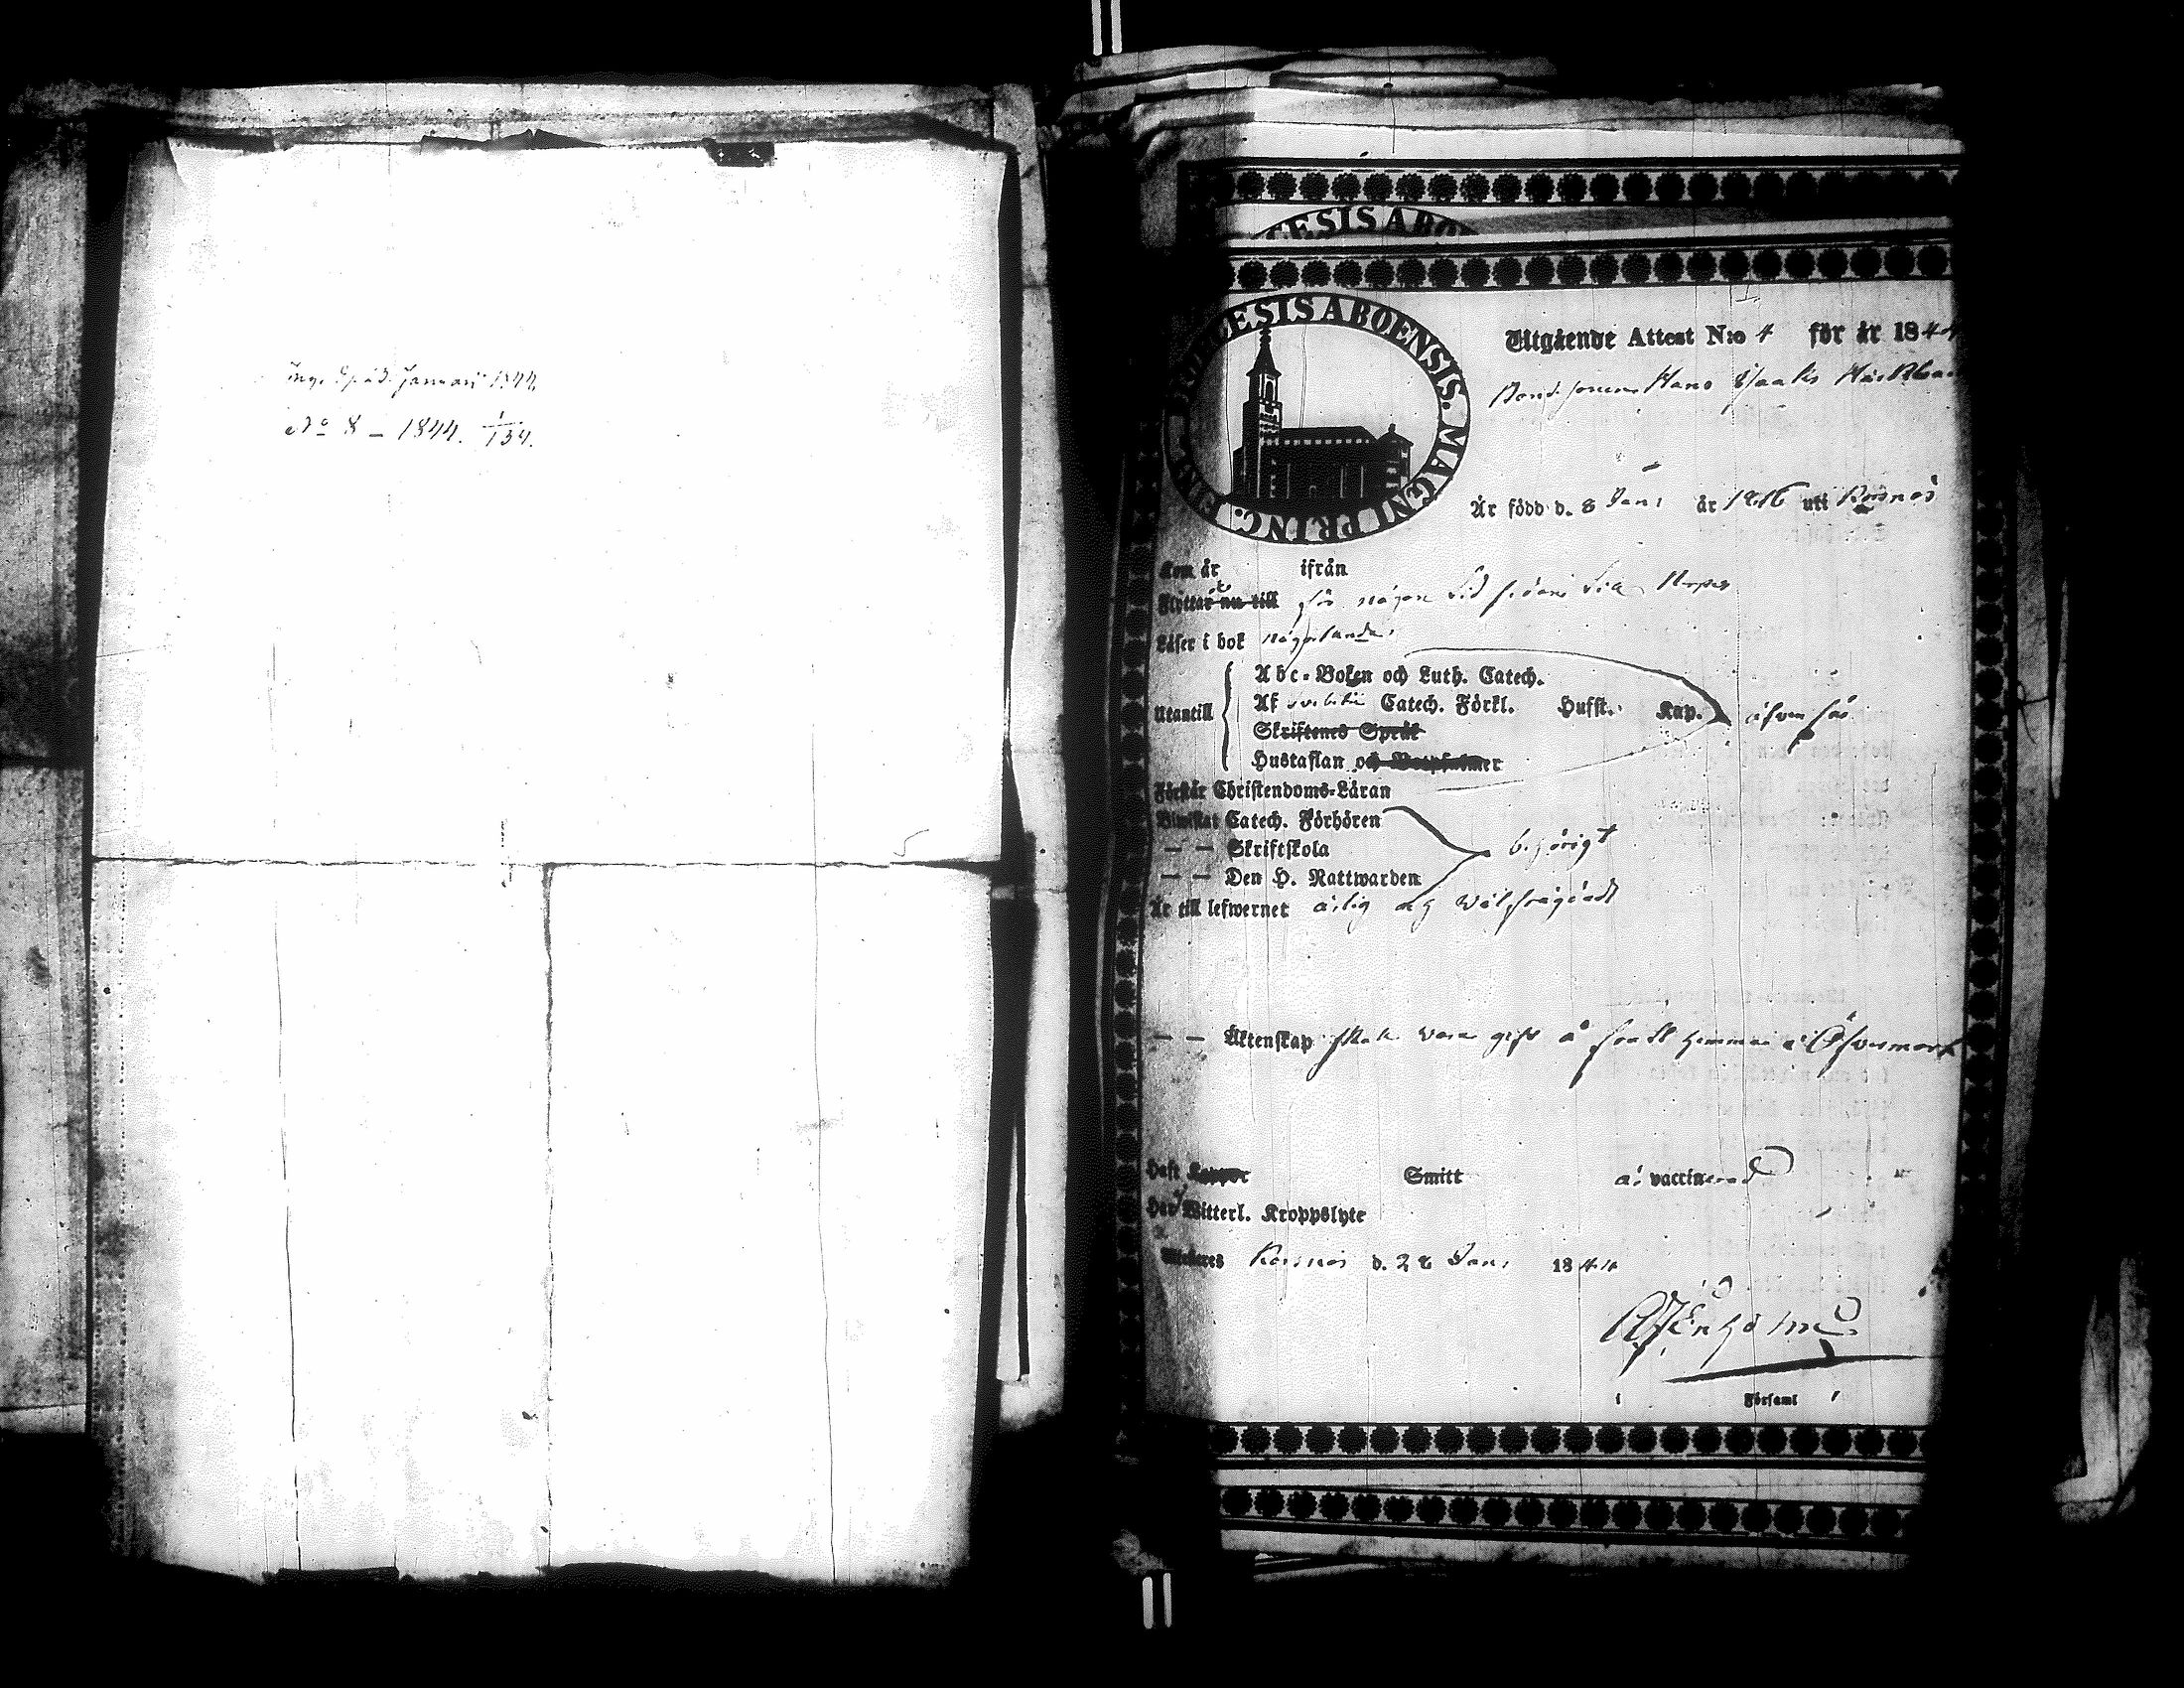 Januari 1844.
No 8 – 1844. 1/134.
CESIS ABOE
DIOECESIS ABOENSIS. MAGNI PRINC. FINL.
Utgående Attest N:o 4 för år 1844
Bondesonen Hans Isaaks
Är född d. 8 Jan: år 1816 uti Korsnäs
Kom år ifrån
Flyttar nu till för någon tid till Nerpes
Läser i bok någorlunda
Abc-Boken och Luth. Catech.
Utantill Af Svebilii Catech. Förkl. Husst. Kap. äfven så
Skriftenes Språk
Hustaflan och Botpsalmer
Förstår Christendoms-Läran
Biwistat Catech. Förhören
— — Skriftskola behörigt
— — Den H. Nattwarden
Är till lefwernet ärlig och wälfrägdad
— — Äktenskap skall vara gift å hemman i Öfvermark
Haft Koppor Smitt är vaccinerad
Har Witterl. Kroppslyte
Meddeles Korsnäs d. 28 Jan: 1844
i Församl